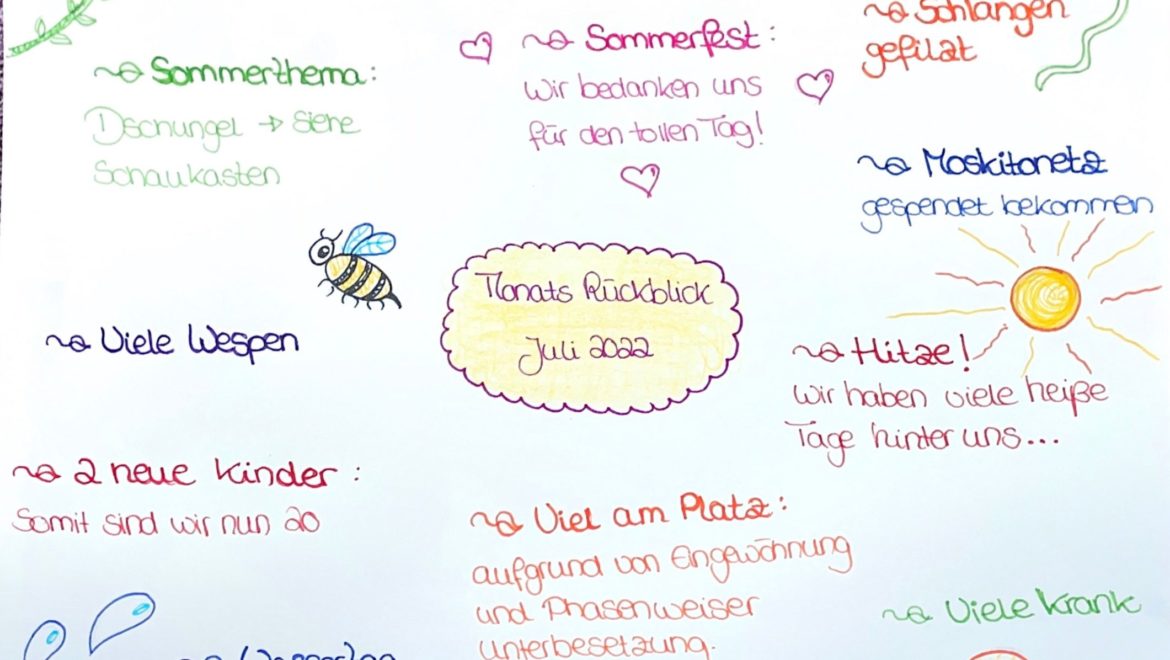 Sommerthema:
Dschungel → siehe
Schaukasten
Sommerfest:
Wir bedanken uns
für den tollen Tag!
Schlangen
gefilzt
Moskitonetz
gespendet bekommen
Monats Rückblick
Juli 2022
Viele Wespen
Hitze!
Wir haben viele heiße
Tage hinter uns...
2 neue Kinder:
Somit sind wir nun 20
Viel am Platz:
aufgrund von Eingewöhnung
und Phasenweiser
Unterbesetzung.
Viele Krank